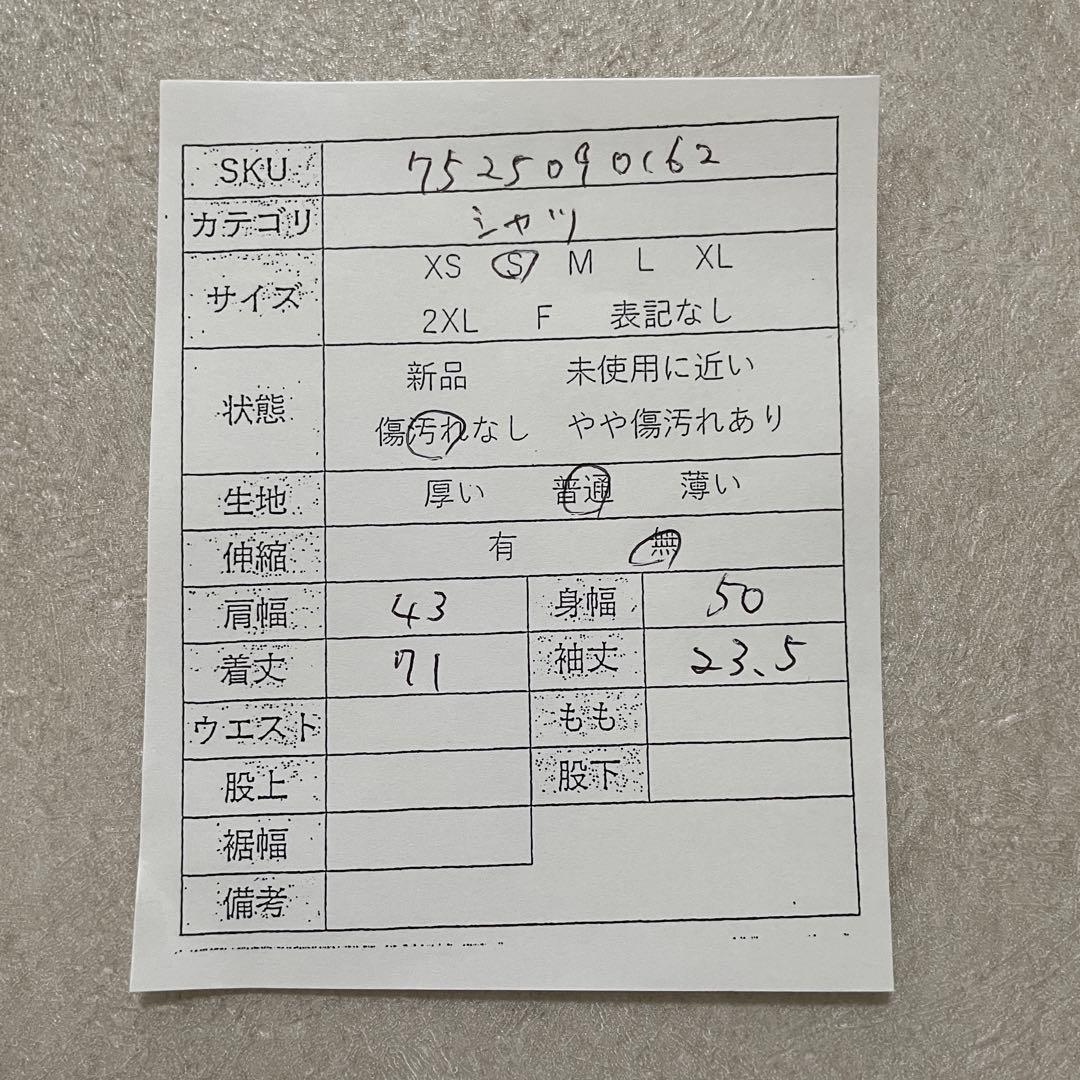 SKU 7525090162
カテゴリ シャツ
サイズ XS S M L XL
2XL F 表記なし
状態 新品 未使用に近い
傷汚れなし やや傷汚れあり
生地 厚い 普通 薄い
伸縮 有 無
肩幅 43 身幅 50
着丈 71 袖丈 23.5
ウエスト もも
股上 股下
裾幅
備考